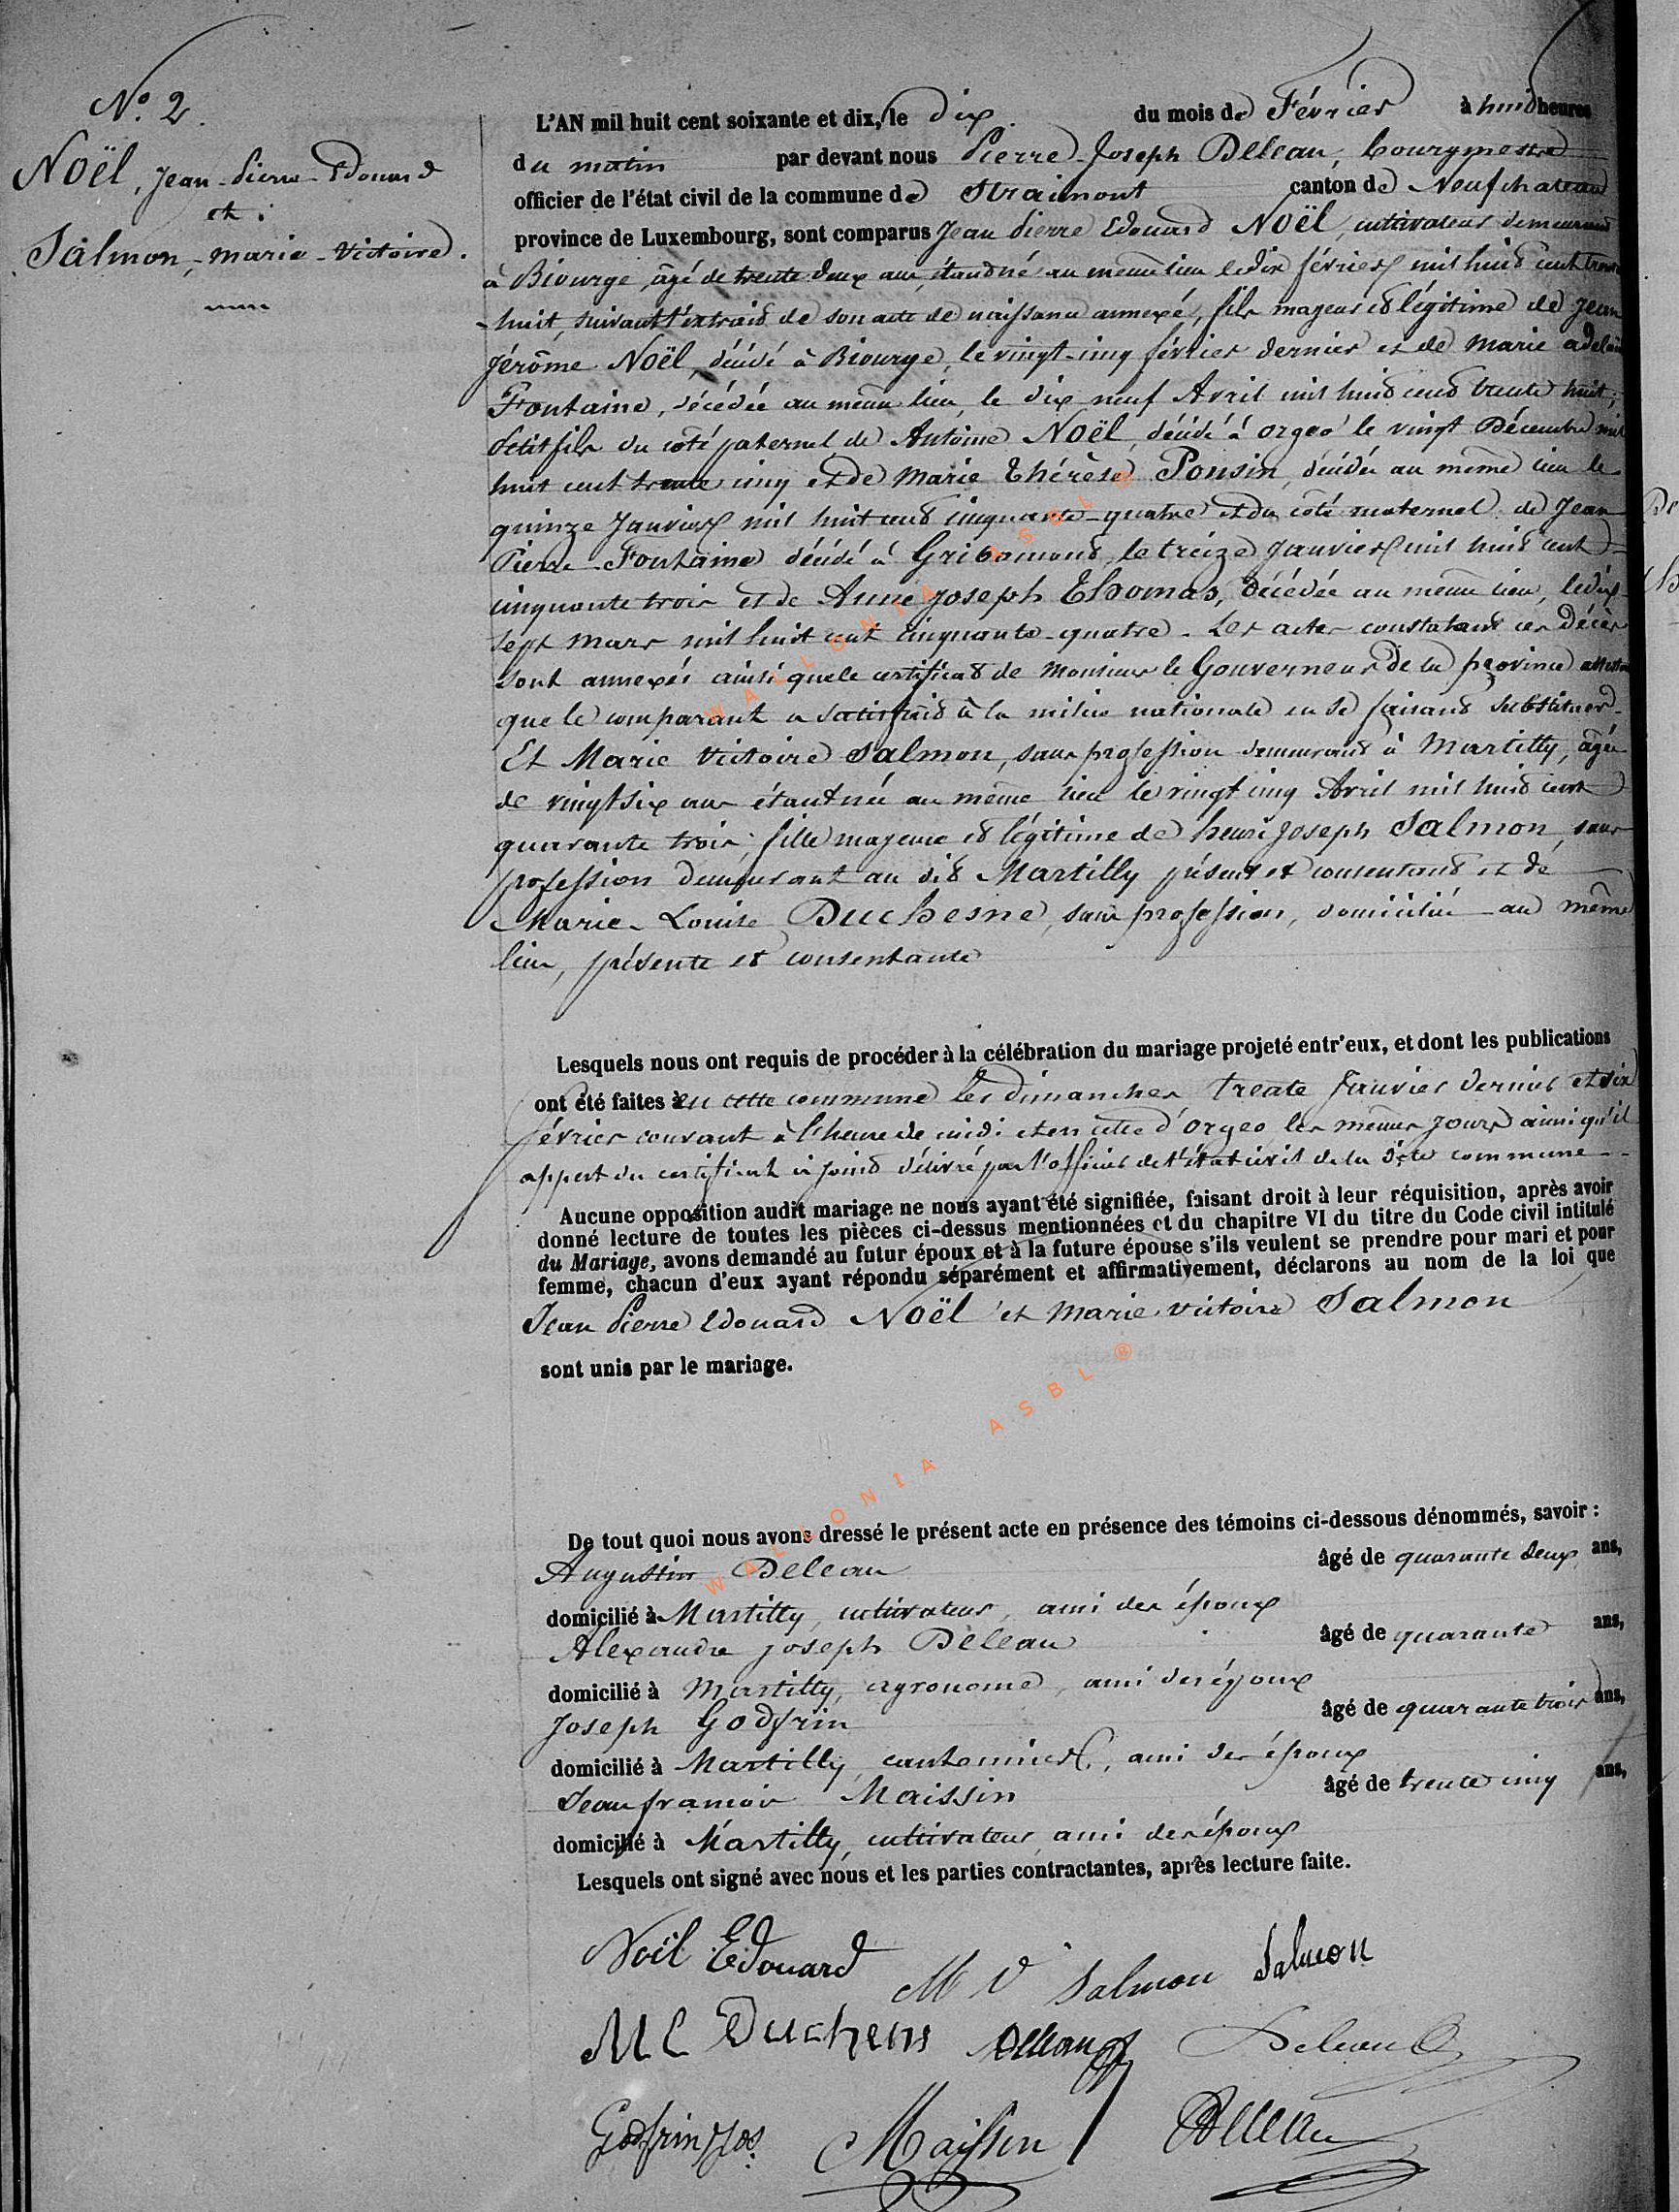 N.° 2.
Noël, Jean-Pierre-Edouard
et
Salmon, marie-Victoire.
L'AN mil huit cent soixante et dix, le dix du mois de Février à huit heures
du matin par devant nous Pierre-Joseph Deleau, bourgmestre
officier de l'état civil de la commune de Straimont canton de Neufchateau
province de Luxembourg, sont comparus Jean Pierre Edouard Noël, cultivateur demeurant
à Biourge, âgé de trente deux ans, étant né au même lieu le dix février mil huit cent trente
-huit, suivant l'extrait de son acte de naissance annexé, fils majeur et légitime de Jean
Jérôme Noël, décédé à Biourge, le vingt-cinq février dernier et de Marie adelaïde
Fontaine, décédée au même lieu, le dix neuf Avril mil huit cent trente huit;
Petit fils du côté paternel de Antoine Noël, décédé à Orgeo le vingt Décembre mil
huit cent trente cinq et de Marie Thérèse Ponsin, décédée au même lieu le
quinze Janvier mil huit cent cinquante-quatre et du côté maternel de Jean
Pierre Fontaine décédé à Gribomont, le treize Janvier mil huit cent
cinquante trois et de Anne Joseph Thomas, décédée au même lieu, le dix-
sept mars mil huit cent cinquante-quatre. Les actes constatant ces décès
sont annexés ainsi que le certificat de Monsieur le Gouverneur de la province attestant
que le comparant a satisfait à la milice nationale en se faisant substituer.
Et Marie Victoire Salmon, sans profession demeurant à Martilly, âgée
de vingt six ans étant née au même lieu le vingt cinq Avril mil huit cent
quarante trois; fille majeure et légitime de henri Joseph Salmon, sans
profession demeurant au dit Martilly présent et consentant et de
Marie-Louise Duchesne, sans profession, domiciliée au même
lieu, présente et consentante
Lesquels nous ont requis de procéder à la célébration du mariage projeté entr'eux, et dont les publications
ont été faites en cette commune les dimanches trente Janvier dernier et six
février courant à l'heure de midi et en celle d'Orgeo les mêmes jours ainsi qu'il
appert du certificat ci joint délivré par l'officier de l'état civil de la dite commune
Aucune opposition audit mariage ne nous ayant été signifiée, faisant droit à leur réquisition, après avoir
donné lecture de toutes les pièces ci-dessus mentionnées et du chapitre VI du titre du Code civil intitulé
du Mariage, avons demandé au futur époux et à la future épouse s'ils veulent se prendre pour mari et pour
femme, chacun d'eux ayant répondu séparément et affirmativement, déclarons au nom de la loi que
Jean Pierre Edouard Noël et Marie Victoire Salmon
sont unis par le mariage.
De tout quoi nous avons dressé le présent acte en présence des témoins ci-dessous dénommés, savoir :
Augustin Deleau âgé de quarante deux ans,
domicilié à Martilly, cultivateur, ami des époux
Alexandre Joseph Deleau âgé de quarante ans,
domicilié à Martilly, agronome, ami des époux
Joseph Godfrin âgé de quarante trois ans,
domicilié à Martilly, cantonnier, ami des époux
Jean françois Maissin âgé de trente cinq ans,
domicilié à Martilly, cultivateur ami des époux
Lesquels ont signé avec nous et les parties contractantes, après lecture faite.
Noël Edouard M V Salmon Salmon
M L Duchens Deleau Deleau
Godfrin Jos. Maissin Deleau
WALLONIA ASBL ®
WALLONIA ASBL ®